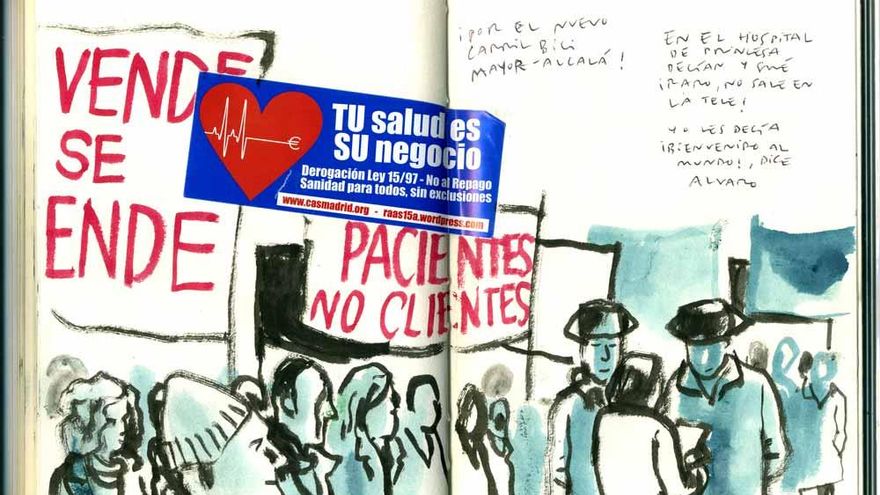 VENDE
SE
ENDE
TU salud es
SU negocio
Derogación Ley 15/97 - No al Repago
Sanidad para todos, sin exclusiones
www.casmadrid.org - raas15a.wordpress.com
PACIENTES
NO CLIENTES
¡POR EL NUEVO
CARRIL BICI
MAYOR-ALCALÁ!
EN EL HOSPITAL
DE PRINCESA
DECÍAN Y QUÉ
RARO, NO SALE EN
LA TELE!
YO LES DECÍA
¡BIENVENIDO AL
MUNDO!, DICE
ALVARO